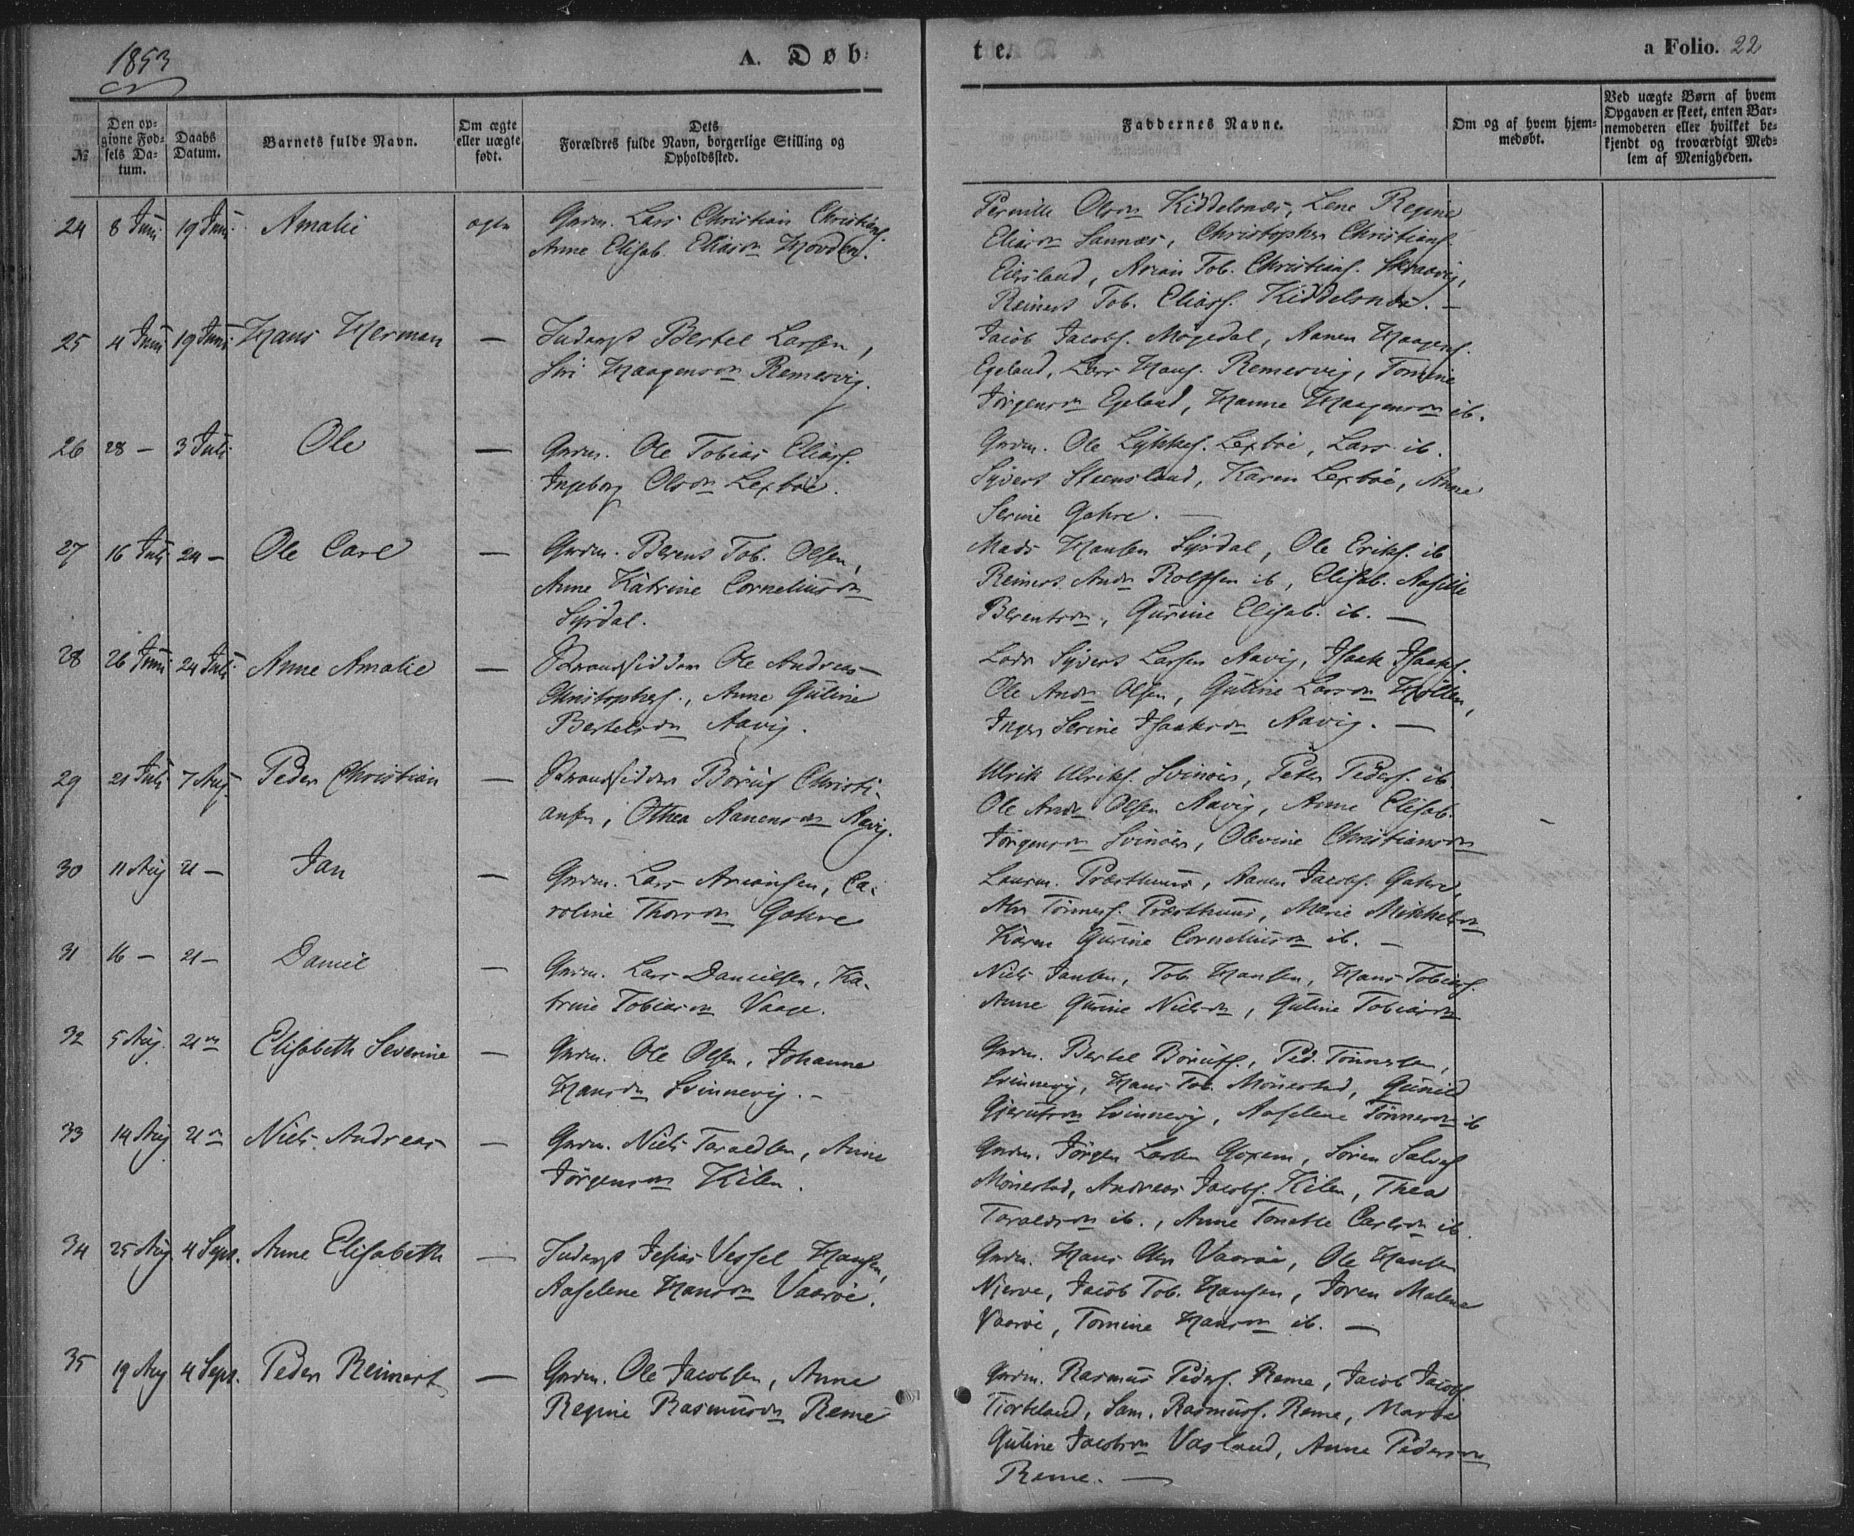 1853
A. Døb-
te.
a Folio. 22
№
Den op-
givne Fød-
sels Da-
tum.
Daabs
Datum.
Barnets fulde Navn.
Om ægte
eller uægte
født.
Dets
Forældres fulde Navn, borgerlige Stilling og
Opholdssted.
Faddernes Navne.
Om og af hvem hjem-
medøbt.
Ved uægte Børn af hvem
Opgaven er skeet, enten Bar-
nemoderen eller hvilket be-
kjendt og troværdigt Med-
lem af Menigheden.
24 8 Juni 19 Juni Amalie ægte
Gmdm. Lars Christian Christians.
Anne Elisab. Eliasdn Hovden.
Pernille Olsdn Kiddelsnæs, Lene Regine
Eliasdn Sannæs, Christopher Christians.
Eiesland, Arian Tob. Christians. Skraavig,
Reinert Tob. Elias. Kiddelsnæs. —
25 4 Juni 19 Juni Hans Herman —
Inderst Bertel Larsen,
Siri Haagensdn Remesvig.
Jacob Jacobs. Møgedal, Aanen Haagens.
Egeland, Lars Hans. Remesvig, Tomine
Jörgensdn Egeland, Hanne Haagensdn ib.
26 28 — 3 Juli Ole —
Gmdm. Ole Tobias Elias.
Ingeborg Olsdn Lextøe.
Gmdm. Ole Lykkes. Lextøe, Lars ib.
Sÿvert Steensland, Karen Lextøe, Anne
Serine Gahre. —
27 16 Juli 24 — Ole Carl —
Gmdm. Berent Tob. Olsen,
Anne Katrine Corneliusdn
Syrdal.
Mads Hansen Syrdal, Ole Eriks. ib
Reinert Andr Rolfsen ib, Elisab. Aasille
Berentsdn, Gurine Elisab. ib. —
28 26 Juni 24 Juli Anne Amalie —
Strandsidder Ole Andreas
Christophers., Anne Guline
Bertelsdn Aavig.
Lods Sÿvert Larsen Aavig, Isaak Isaaks.
Ole Andr Olsen, Guline Larsdn Holllen,
Inger Serine Isaaksdn Aavig. —
29 21 Juli 7 Aug. Peder Christian —
Strandsidder Børuf Christi-
ansen, Othea Aanensdn Aavig.
Ulrik Ulriks. Svinøer, Peter Peders. ib
Ole Andr Olsen Aavig, Anne Elisab.
Jörgensdn Svinøer, Olevine Christiansdn
30 11 Aug 21 — Jan —
Gmdm. Lars Ariansen, Ca-
roline Thorsdn Gahre
Laurm. Præsthuus, Aanen Jacobs. Gahre,
Atn Tönnes. Præsthuus, Marie Mikkelsdn
Karen Gurine Corneliusdn ib. —
31 16 — 21 — Daniel —
Gmdm. Lars Danielsen, Ka-
trine Tobiasdn Vaage.
Niels Jansen, Tob. Hansen, Hans Tobias.
Anne Gurine Nielsdn, Guline Tobiasdn
32 5 Aug. 21 Elisabeth Severine —
Gmdm. Ole Olsen, Johanne
Hansdn Svinnevig. —
Gmdm. Bertel Börufs., Ped. Tönnesen,
Svinnevig, Hans Tob. Mönestad, Gunild
Gjerufsdn Svinnevig, Aaselene Tönnesdn ib
33 14 Aug 21 Niels Andreas —
Gmdm. Niels Taraldsen, Anne
Jörgensdn Kilen.
Gmdm. Jörgen Larsen Goxem, Sören Salves
Mönestad, Andreas Jacobs. Kilen, Thea
Taraldsdn ib., Anne Tonette Carlsdn ib.
34 25 Aug. 4 Sept. Anne Elisabeth —
Inderst Jesias Vessel Hansen,
Aaselene Hansdn Vaarøe.
Gmdm. Hans Olsn Vaarøe, Ole Hansen
Njerve, Jacob Tob. Hansen, Joren Malene
Vaarøe, Tomine Hansdn ib. —
35 19 Aug 4 Sept. Peder Reinert —
Gmdm. Ole Jacobsen, Anne
Regine Rasmusdn Reme
Gmdm. Rasmus Peders. Reme, Jacob Jacobs.
Tiorteland, Sam. Rasmus. Reme, Marte
Guline Jacobsdn Vasland, Anne Pedersdn
Reme. —